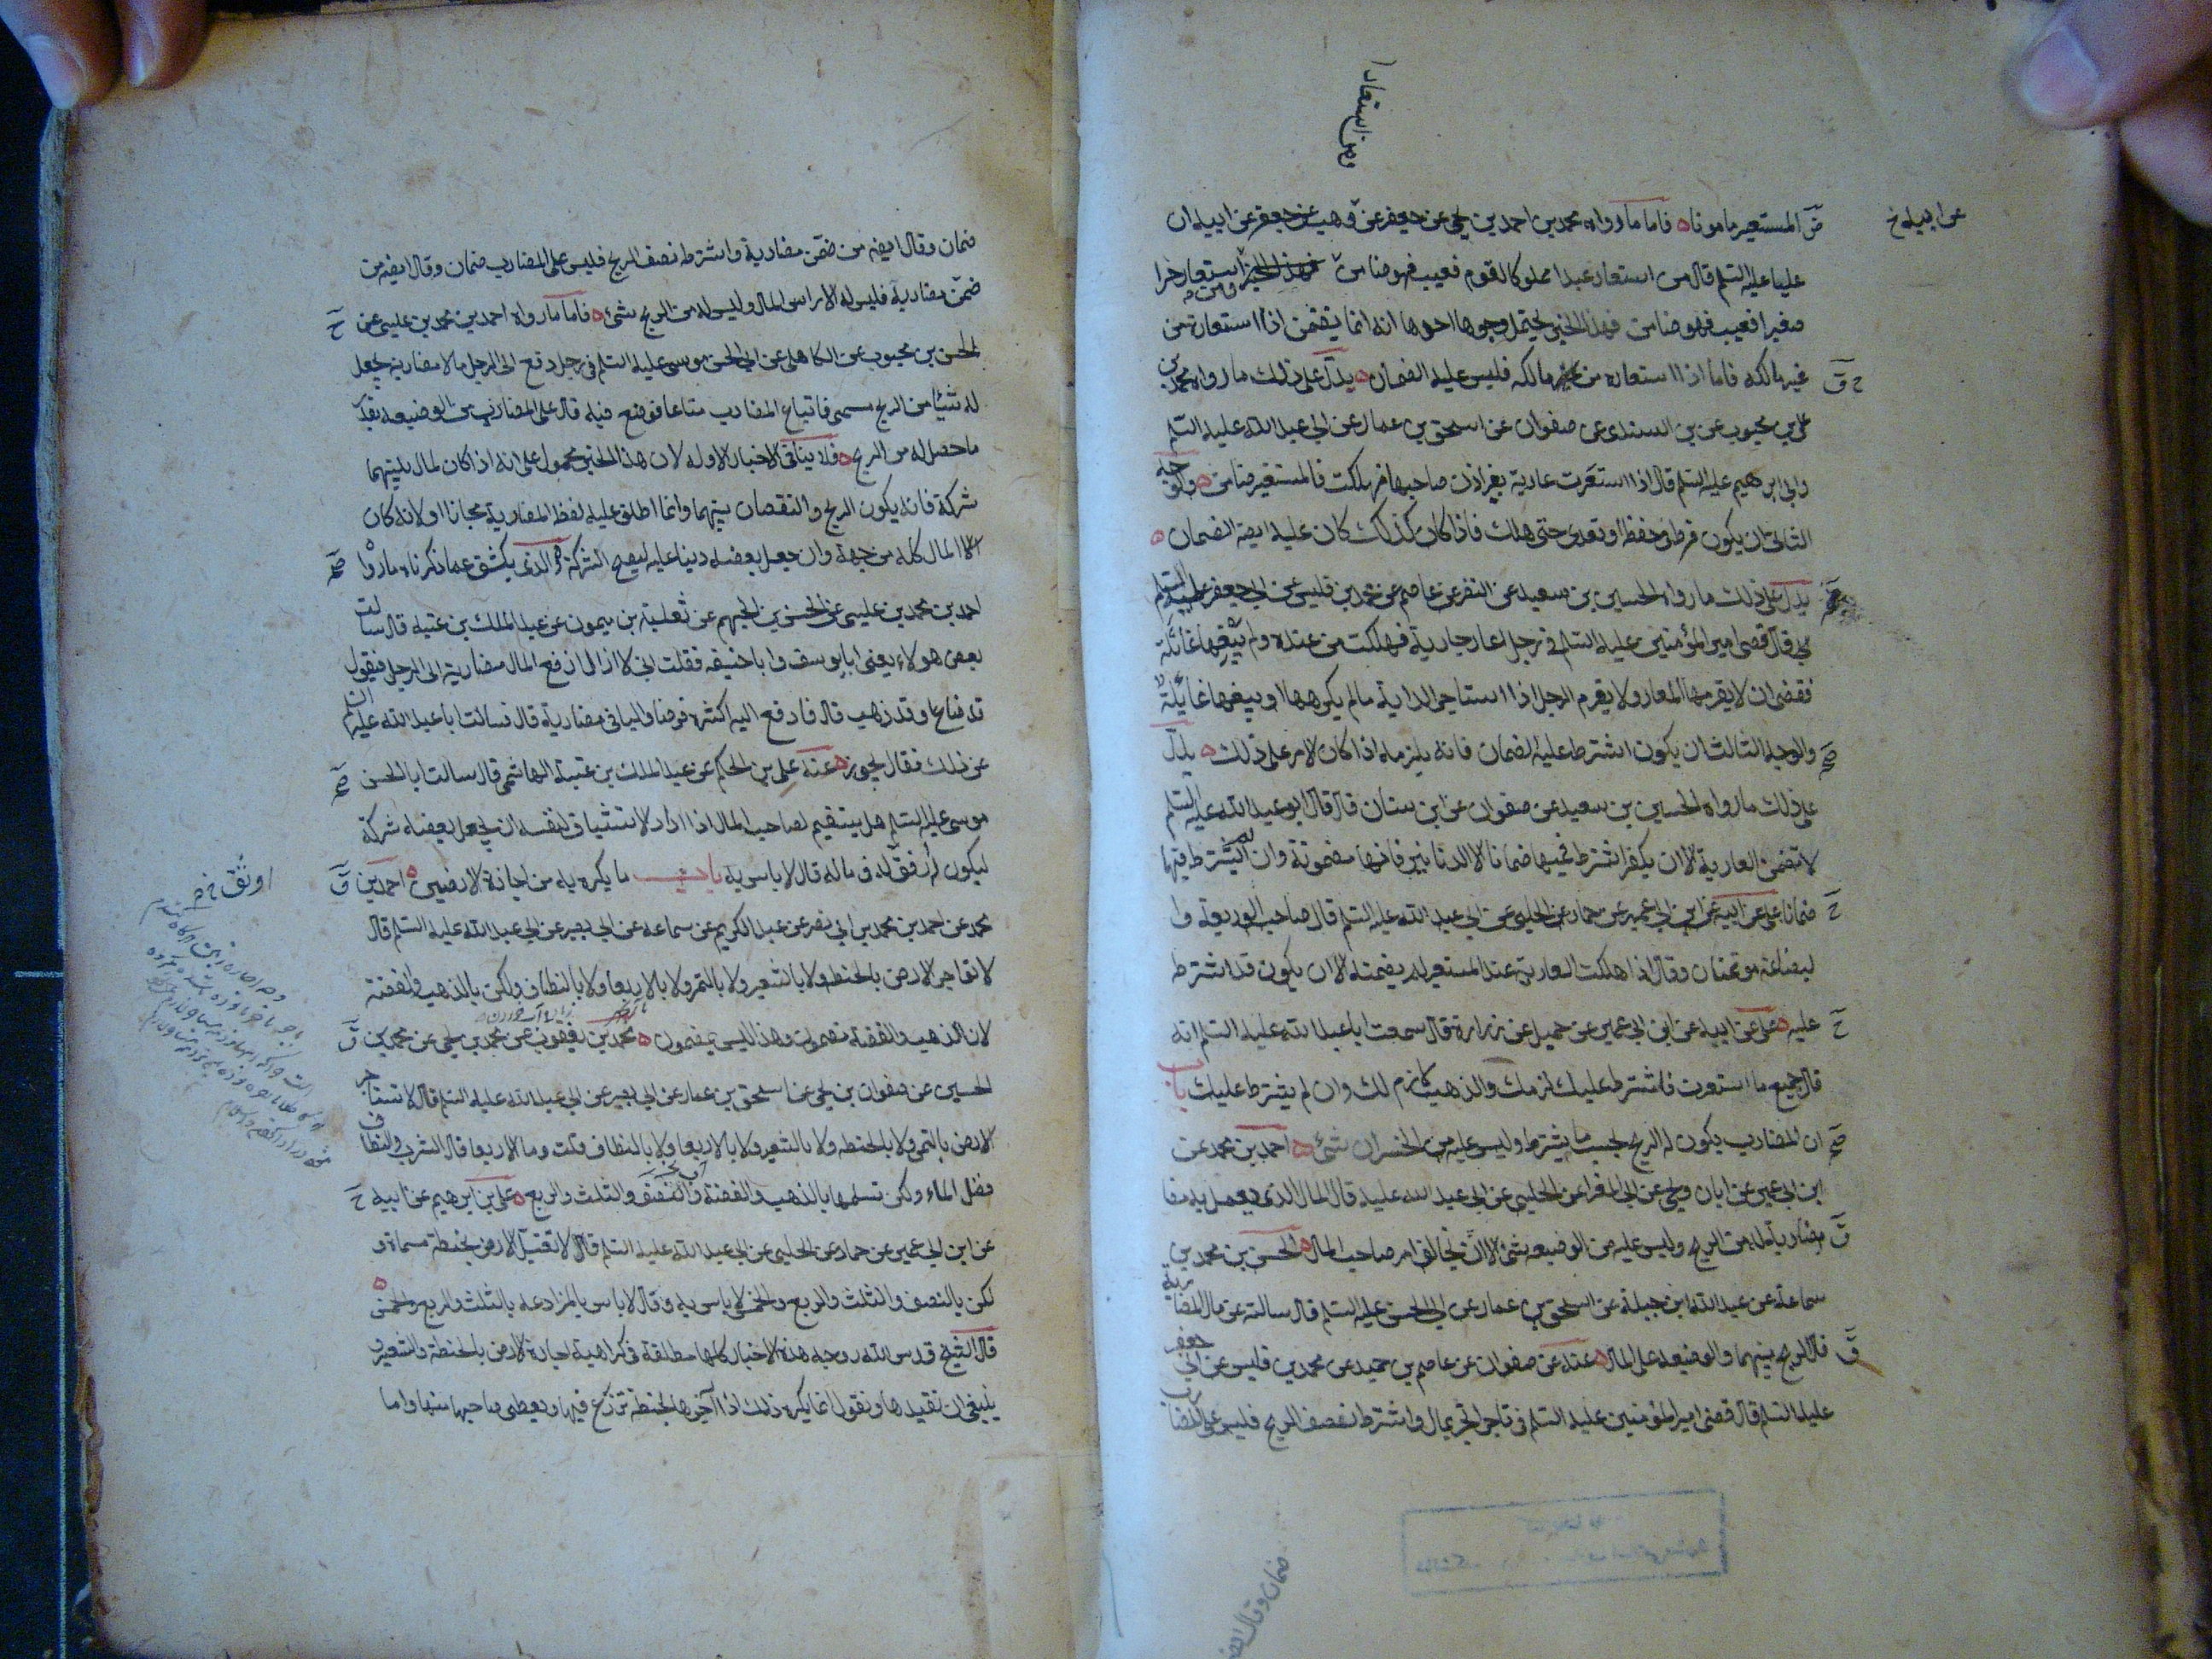 ومن استعار
عن ابيه خ
المستعير مامونا فاما ما رواه محمد بن احمد بن يحيى عن جعفر عن وهب عن جعفر عن ابيه ان
عليا عليه السلم قال من استعار عبدا مملوكا لقوم فعيب فهو ضامن ومن استعار حرا
صغيرا فعيب فهو ضامن فهذا الخبر يحتمل وجوها احدها انه انما يضمن اذا استعاره من
غير مالكه فاما اذا استعاره من مالكه فليس عليه الضمان يدل على ذلك ما رواه محمد بن
علي بن محبوب عن بن السندي عن صفوان عن اسحق بن عمار عن ابي عبد الله عليه السلم
وابي ابرهيم عليه السلم قال اذا استعرت عارية بغير اذن صاحبها فهلكت فالمستعير ضامن والوجه
الثاني ان يكون فرط في حفظه او تعدى حتى هلك فاذا كان كذلك كان عليه ايضه الضمان
يدل على ذلك ما رواه الحسين بن سعيد عن النضر عن عاصم عن محمد بن قيس عن ابي جعفر عليه السلم
قال قضى امير المؤمنين عليه السلم في رجل اعار جارية فهلكت من عنده ولم يبغها غائلة
فقضى ان لا يغرمها المعار ولا يغرم الرجل اذا استاجر الدابة ما لم يكرهها او يبغها غائلة
والوجه الثالث ان يكون اشترط عليه الضمان فانه يلزمه اذا كان الامر على ذلك يدل
على ذلك ما رواه الحسين بن سعيد عن صفوان عن ابن سنان قال قال ابو عبد الله عليه السلم
لا تضمن العارية الا ان يكون اشترط فيها ضمانا الا الدنانير فانها مضمونة وان لم يشترط فيها
ضمانا علي عن ابيه عن ابن ابي عمير عن حماد عن الحلبي عن ابي عبد الله عليه السلم قال صاحب الوديعة وا
لبضاعة مؤتمنان وقال اذا هلكت العارية عند المستعير لم يضمنه الا ان يكون قد اشترط
عليه علي عن ابيه عن ابن ابي عمير عن جميل عن زرارة قال سمعت ابا عبد الله عليه السلم انه
قال جميع ما استعرت فاشترط عليك لزمك والذهب لازم لك وان لم يشترط عليك باب
ان المضارب يكون له الربح بحسب ما يشترط وليس عليه من الخسران شئ احمد بن محمد عن
ابن ابي عمير عن ابان ويحيى عن ابي المغرا عن الحلبي عن ابي عبد الله عليه قال المال الذي يعمل به مضا
مضاربة له من الربح وليس عليه من الوضيعه شئ الا ان يخالف امر صاحب المال الحسن بن محمد بن
سماعة عن عبد الله ابن جبلة عن اسحق بن عمار عن ابي الحسن عليه السلم قال سالته عن مال المضاربه
قال الربح بينهما والوضيعه على المال عنه عن صفوان عن عاصم بن حميد عن محمد بن قيس عن ابي جعفر
عليه السلم قال قضى امير المؤمنين عليه السلم في تاجر اتجر بمال واشترط نصف الربح فليس على المضارب
ضمان وقال ايضه
ضمان وقال ايضه من ضمن مضاربة واشترط نصف الربح فليس على المضارب ضمان وقال ايضه من
ضمن مضاربه فليس له الا راس المال وليس له من الربح شئ فاما ما رواه احمد بن محمد بن عليسى عن
الحسن بن محبوب عن الكاهلي عن ابي الحسن موسى عليه السلم في رجل دفع الى الرجل مالا مضاربه يجعل
له شيئا من الربح مسمى فاتباع المضارب متاعا فوضع فيه قال على المضارب من الوضيعه بقدر
ما حصل له من الربح فلا ينافى الاخبار الاوله لان هذا الخبر محمول على انه اذا كان المال بينهما
شركة فانه يكون الربح والنقصان بينهما وانما اطلق عليه لفظ المضاربة مجازا او لانه كان
المال كله من جهة وان جعل بعضه دينا عليه ليصح الشركة والذي يكشف عما ذكرناه ما روا
احمد بن محمد بن عليسى عن الحسن بن الجهم عن ثعلبة بن ميمون عن عبد الملك بن عتبه قال سالت
بعض هولاء يعنى ابا يوسف وابا حنيفه فقلت اني لا ازال ادفع المال مضاربة الى الرجل فيقول
قد ضاع او قد ذهب قال فادفع اليه اكثره قرضا والباقى مضاربة قال فسالت ابا عبد الله عليه السلم
عن ذلك فقال يجوز عنه علي بن الحكم عن عبد الملك بن عتبة الهاشمي قال سالت ابا الحسن
موسى عليه السلم هل يستقيم لصاحب المال اذا اراد الاستيثاق لنفسه ان يجعل بعضه شركة
ليكون اوفق له في ماله قال لا باس به باب ما يكره به من اجازة الارضين احمد بن
محمد عن احمد بن محمد بن ابي نصر عن عبد الكريم عن سماعه عن ابي بصير عن ابي عبد الله عليه السلم قال
لا تؤاجر الارض بالحنطه ولا بالشعير ولا بالتمر ولا بالاربعا ولا بالنطاف ولكن بالذهب والفضة
لان الذهب والفضة مضمون وهذا ليس بمضمون محمد بن يعقوب عن محمد بن يحيى عن محمد بن
الحسين عن صفوان بن يحيى عن اسحق بن عمار عن ابي بصير عن ابي عبد الله عليه السلم قال لا تستاجر
الارض بالتمر ولا بالحنطه ولا بالشعير ولا بالاربعا ولا بالنطاف قلت وما الاربعا قال الشرب والنطاف
فضل الماء ولكن تسلمها بالذهب والفضة والنصف والثلث والربع علي بن ابرهيم عن ابيه
عن ابن ابي عمير عن حماد عن الحلبي عن ابي عبد الله عليه السلم قال لا تقبل الارض بحنطة مسماة و
لكن بالنصف والثلث والربع والخمس لا باس به وقال لا باس بالمزارعه بالثلث والربع والخمس
قال الشيخ قدس الله روحه هذه الاخبار كلها مطلقة في كراهية اجارة الارض بالحنطة والشعير و
ينبغى ان نقيدها ونقول انما يكره ذلك اذا آجرها بحنطة تزرع فيها ويعطى صاحبها منها واما
اوثق خ م